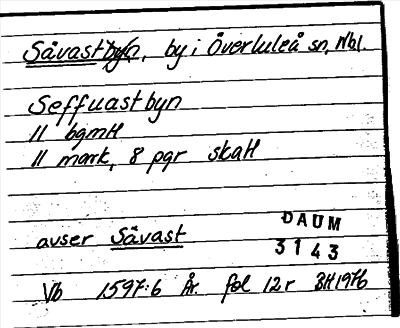 Sävastbyn, by i Överluleå sn, Nbl.
Seffuastbyn
11 bgmtl
11 mark, 8 pgr skatt
avser Sävast
DAUM
3143
Vb 1597:6 År. fol 12r BH1976